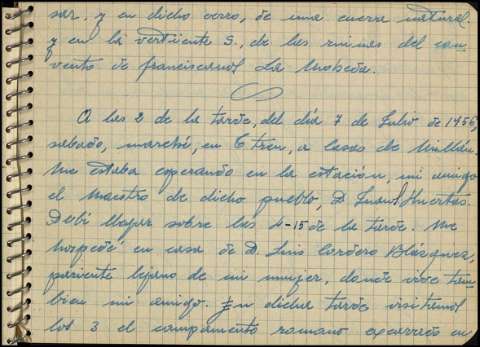 sar, y en dicho cerro, de una cueva natural.
y en la vertiente S., de las ruinas del con-
vento de franciscanos La Moheda.
A las 2 de la tarde, del día 7 de Julio de 1956,
sabado, marché, en C tren, a Casas de Millán.
Me estaba esperando en la estación, mi amigo
el Maestro de dicho pueblo, D. Juan Huertas.
Debí llegar sobre las 4-15 de la tarde. Me
hospedé en casa de D. Luis Cordero Blázquez,
pariente lejano de mi mujer, donde vive tam-
bien mi amigo. En dicha tarde visitamos
los 3 el campamento romano excerrós en